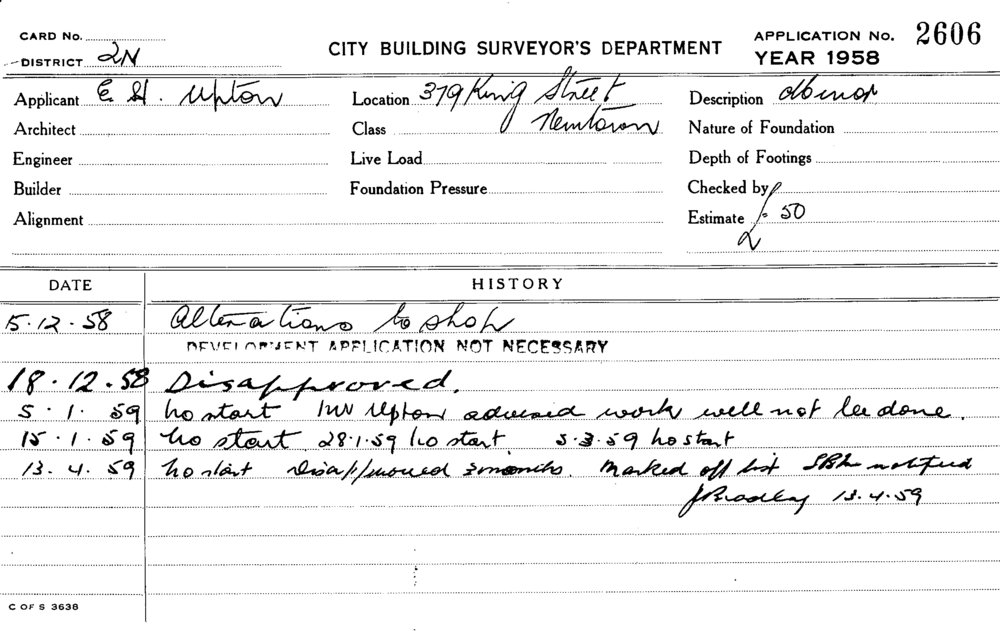 CARD No.
DISTRICT 2N
CITY BUILDING SURVEYOR'S DEPARTMENT
APPLICATION No. 2606
YEAR 1958
Applicant E. H. Upton
Location 379 King Street
Newtown
Description
Architect
Class
Nature of Foundation
Engineer
Live Load
Depth of Footings
Builder
Foundation Pressure
Checked by
Alignment
Estimate £ 50
DATE
HISTORY
15.12.58 Alterations to shop
DEVELOPMENT APPLICATION NOT NECESSARY
18.12.58 Disapproved.
5.1.59 No start Mr Upton advised work will not be done.
15.1.59 No start 28.1.59 No start 5.3.59 No start
13.4.59 No start Disapproved 3 months. Marked off list notified
J Bradley 13.4.59
C OF S 3638